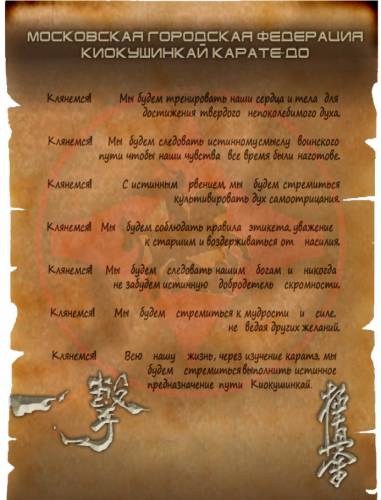 МОСКОВСКАЯ ГОРОДСКАЯ ФЕДЕРАЦИЯ
КИОКУШИНКАЙ КАРАТЕ-ДО
Клянемся! Мы будем тренировать наши сердца и тела для
достижения твердого непоколебимого духа.
Клянемся! Мы будем следовать истинному смыслу воинского
пути чтобы наши чувства все время были наготове.
Клянемся! С истинным рвением, мы будем стремиться
культивировать дух самоотрицания.
Клянемся! Мы будем соблюдать правила этикета, уважение
к старшим и воздерживаться от насилия.
Клянемся! Мы будем следовать нашим богам и никогда
не забудем истинную добродетель скромности.
Клянемся! Мы будем стремиться к мудрости и силе,
не ведая других желаний.
Клянемся! Всю нашу жизнь, через изучение каратэ, мы
будем стремиться выполнить истинное
предназначение пути Киокушинкай.
一撃
極真会